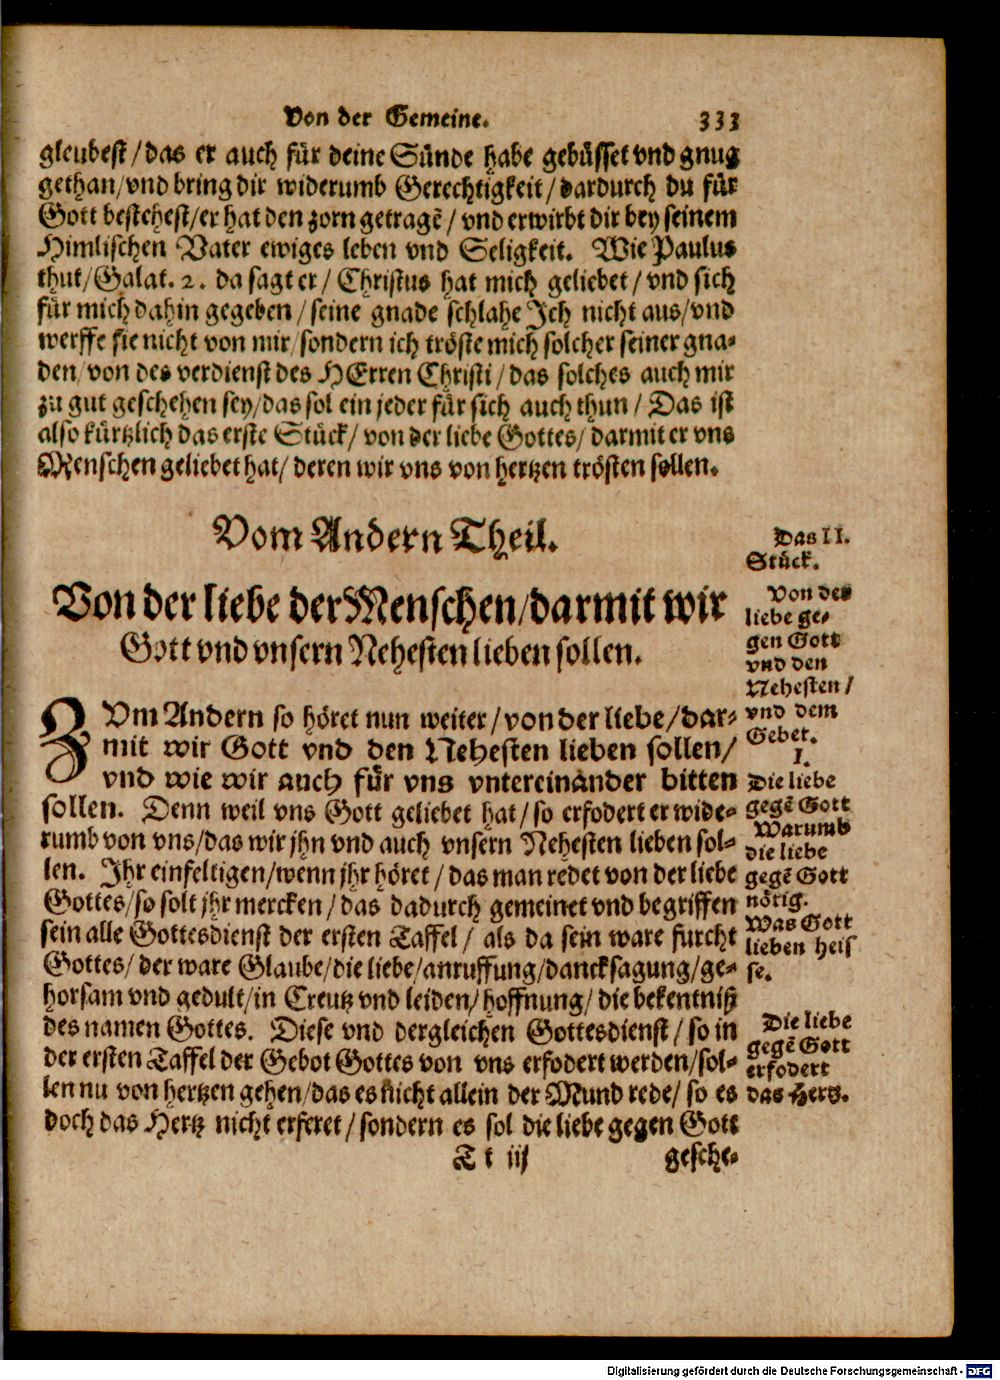 Von der Gemeine. 333
gleubest/das er auch für deine Sünde habe gebüsset vnd gnug
gethan/vnd bring dir widerumb Gerechtigkeit/dardurch du für
Gott bestehest/er hat den zorn getragẽ/vnd erwirbt dir bey seinem
Himlischen Vater ewiges leben vnd Seligkeit. Wie Paulus
thut/Galat. 2. da sagt er/Christus hat mich geliebet/vnd sich
für mich dahin gegeben/seine gnade schlahe Ich nicht aus/vnd
werffe sie nicht von mir/sondern ich tröste mich solcher seiner gna-
den/von des verdienst des HErren Christi/das solches auch mir
zu gut geschehen sey/das sol ein jeder für sich auch thun/Das ist
also kürtzlich das erste Stück/von der liebe Gottes/darmit er vns
Menschen geliebet hat/deren wir vns von hertzen trösten sollen.
Vom Andern Theil.
Von der liebe der Menschen/darmit wir
Gott vnd vnsern Nehesten lieben sollen.
ZVm Andern so höret nun weiter/von der liebe/dar-
mit wir Gott vnd den Nehesten lieben sollen/
vnd wie wir auch für vns vntereinander bitten
sollen. Denn weil vns Gott geliebet hat/so erfodert er wide-
rumb von vns/das wir jhn vnd auch vnsern Nehesten lieben sol-
len. Ihr einfeltigen/wenn jhr höret/das man redet von der liebe
Gottes/so solt jhr mercken/das dadurch gemeinet vnd begriffen
sein alle Gottesdienst der ersten Taffel/als da sein ware furcht
Gottes/der ware Glaube/die liebe/anruffung/dancksagung/ge-
horsam vnd gedult/in Creutz vnd leiden/hoffnung/die bekentniß
des namen Gottes. Diese vnd dergleichen Gottesdienst/so in
der ersten Taffel der Gebot Gottes von vns erfodert werden/sol-
len nu von hertzen gehen/das es nicht allein der Mund rede/so es
doch das Hertz nicht erferet/sondern es sol die liebe gegen Gott
T t iij gesche-
Das II.
Stück.
Von der
liebe ge-
gen Gott
vnd den
Nehesten/
vnd dem
Gebet.
1.
Die liebe
gegẽ Gott
Warumb
die liebe
gegẽ Gott
nötig.
Was Gott
lieben heis
se.
Die liebe
gegẽ Gott
erfodert
das Hertz.
Digitalisierung gefördert durch die Deutsche Forschungsgemeinschaft - DFG